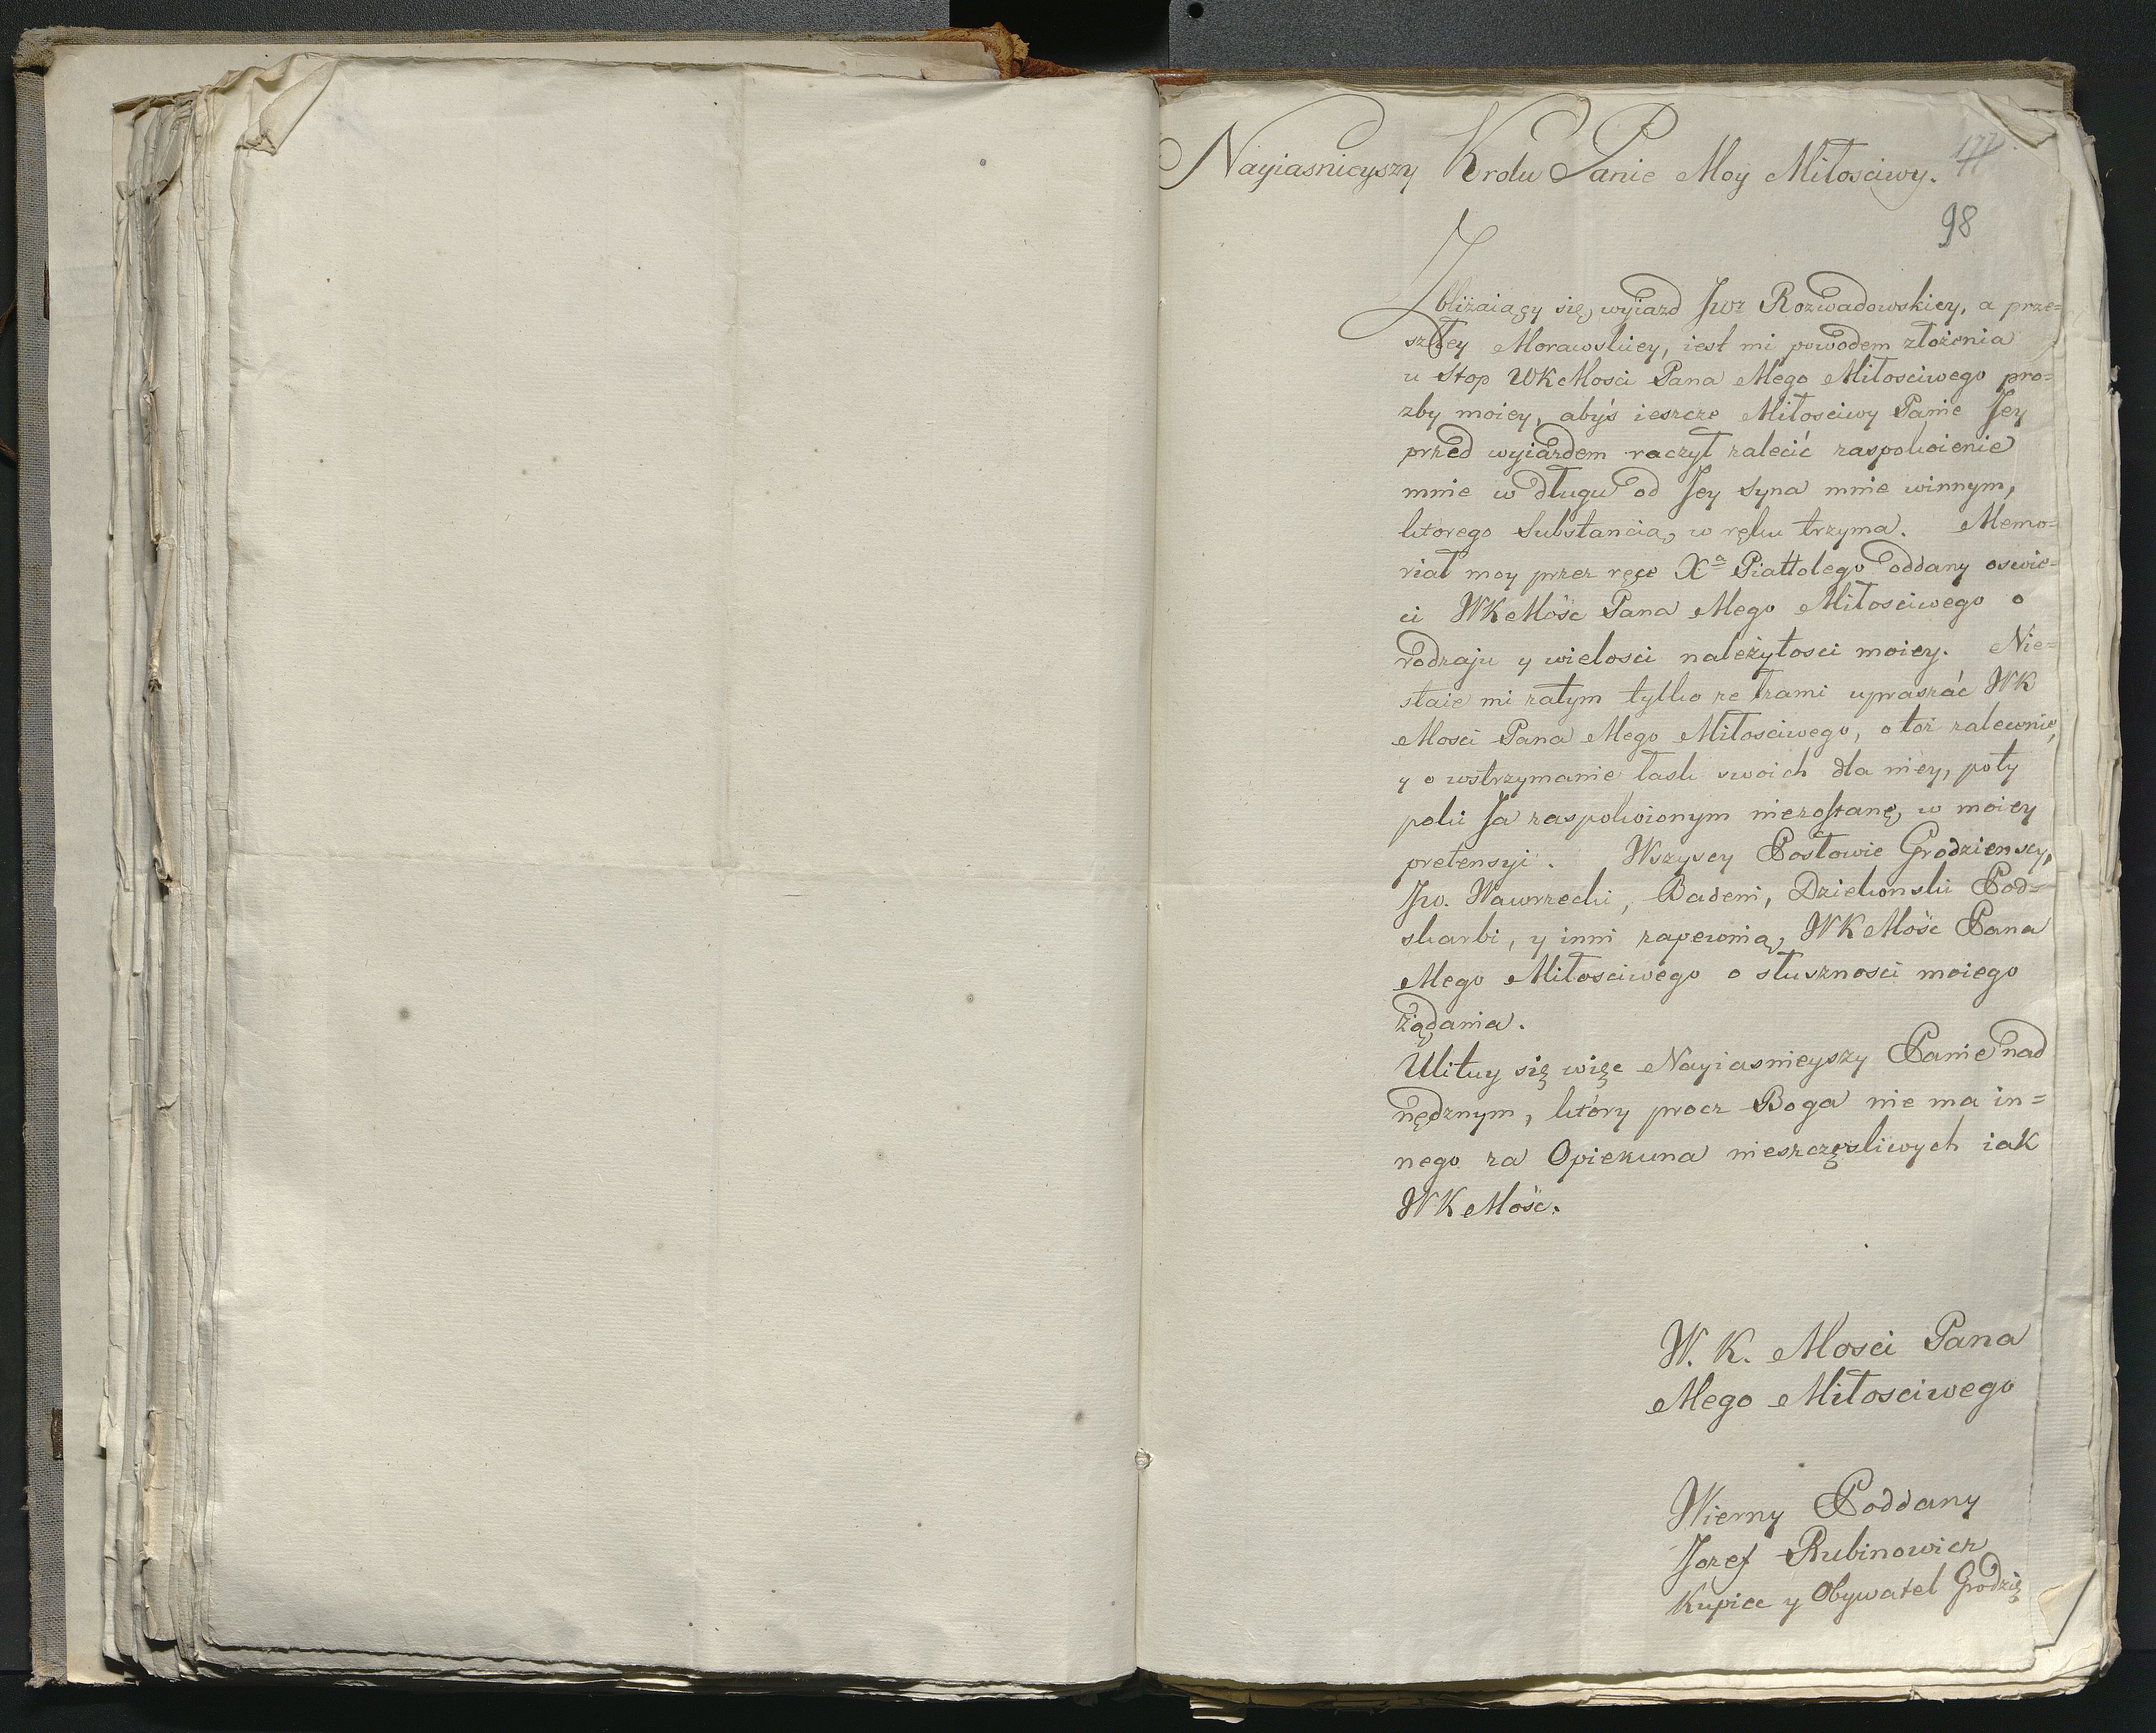 Nayiasnieyszy Krolu Panie Moy Miłosciwy.
177
98
Zbliżaiący się wyiazd Jwz Rozwadowskiey, a prze=
szłey Morawskiey, iest mi powodem złożenia
u Stop WKMosci Pana Mego Miłosciwego pro=
zby moiey, abyś ieszcze Miłosciwy Panie Jey
przed wyiazdem raczył zalecić zaspokoienie
mnie w długu od Jey Syna mnie winnym,
ktorego Substancią w ręku trzyma. Memo=
riał moy przez ręce Xa Piattolego oddany oswie=
ci WKMość Pana Mego Miłosciwego o
rodzaju y wielosci należytosci moiey. Nie=
staie mi zatym tylko ze łzami upraszać WK
Mosci Pana Mego Miłosciwego, o toż zalecenie,
y o wstrzymanie łask swoich dla niey, poty
poki Ja zaspokoionym niezostanę, w moiey
pretensyi. Wszyscy Posłowie Grodzienscy,
Jw. Wawrzecki, Badeni, Dziekonski Pod=
skarbi, y inni zapewnią, WKMość Pana
Mego Miłosciwego o słusznosci moiego
żądania.
Ulituy się więc Nayiasnieyszy Panie nad
nędznym, który procz Boga nie ma in=
nego za Opiekuna nieszczęsliwych iak
WKMość.
W. K. Mosci Pana
Mego Miłosciwego
Wierny Poddany
Jozef Rubinowicz
Kupiec y Obywatel Grodzię